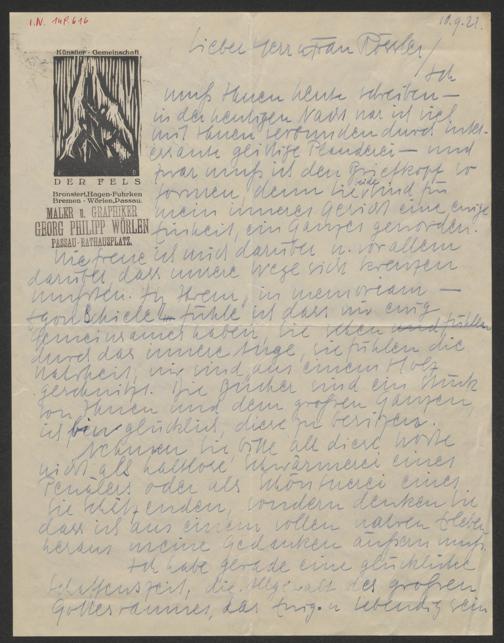 I.N. 148.616
10.9.22.
Künstler-Gemeinschaft
DER FELS
Bronstert, Hagen-Fuhrken
Bremen-Wörlen, Passau.
MALER u. GRAPHIKER
GEORG PHILIPP WÖRLEN
PASSAU-RATHAUSPLATZ.
Lieber Herr u. Frau Roessler/
Ich
muß Ihnen heute schreiben –
in der heutigen Nacht war ich viel
mit Ihnen verbunden durch inter-
essante geistige Plauderei – und
zwar muß ich den Briefkopf so
formen, denn Sie beide sind für
mein inneres Gesicht eine einzige
Einheit, ein Ganzes geworden.
Wie freue ich mich darüber u. vor allem
darüber, dass unsere Wege sich kreuzen
mußten. In Ihrem, in memoriam –
Egon Schiele – fühle ich dass wir ewig
Gemeinsames haben, Sie sehen und fühlen
durch das innere Auge, Sie fühlen die
Wahrheit, wir sind aus einem Holz
geschnitzt. Die Bücher sind ein Stück
von Ihnen und dem großen Ganzen,
ich bin glücklich, diese zu besitzen.
Nehmen Sie bitte all diese Worte
nicht als haltlose Schwärmerei eines
Penälers oder als Schöntuerei eines
Sie Schätzenden, sondern denken Sie
dass ich aus einem vollen wahren Erleben
heraus meine Gedanken äußern muß.
Ich habe gerade eine glückliche
Schaffenszeit, die Allgewalt des großen
Gottesraumes, das Ewige u. lebendig sein